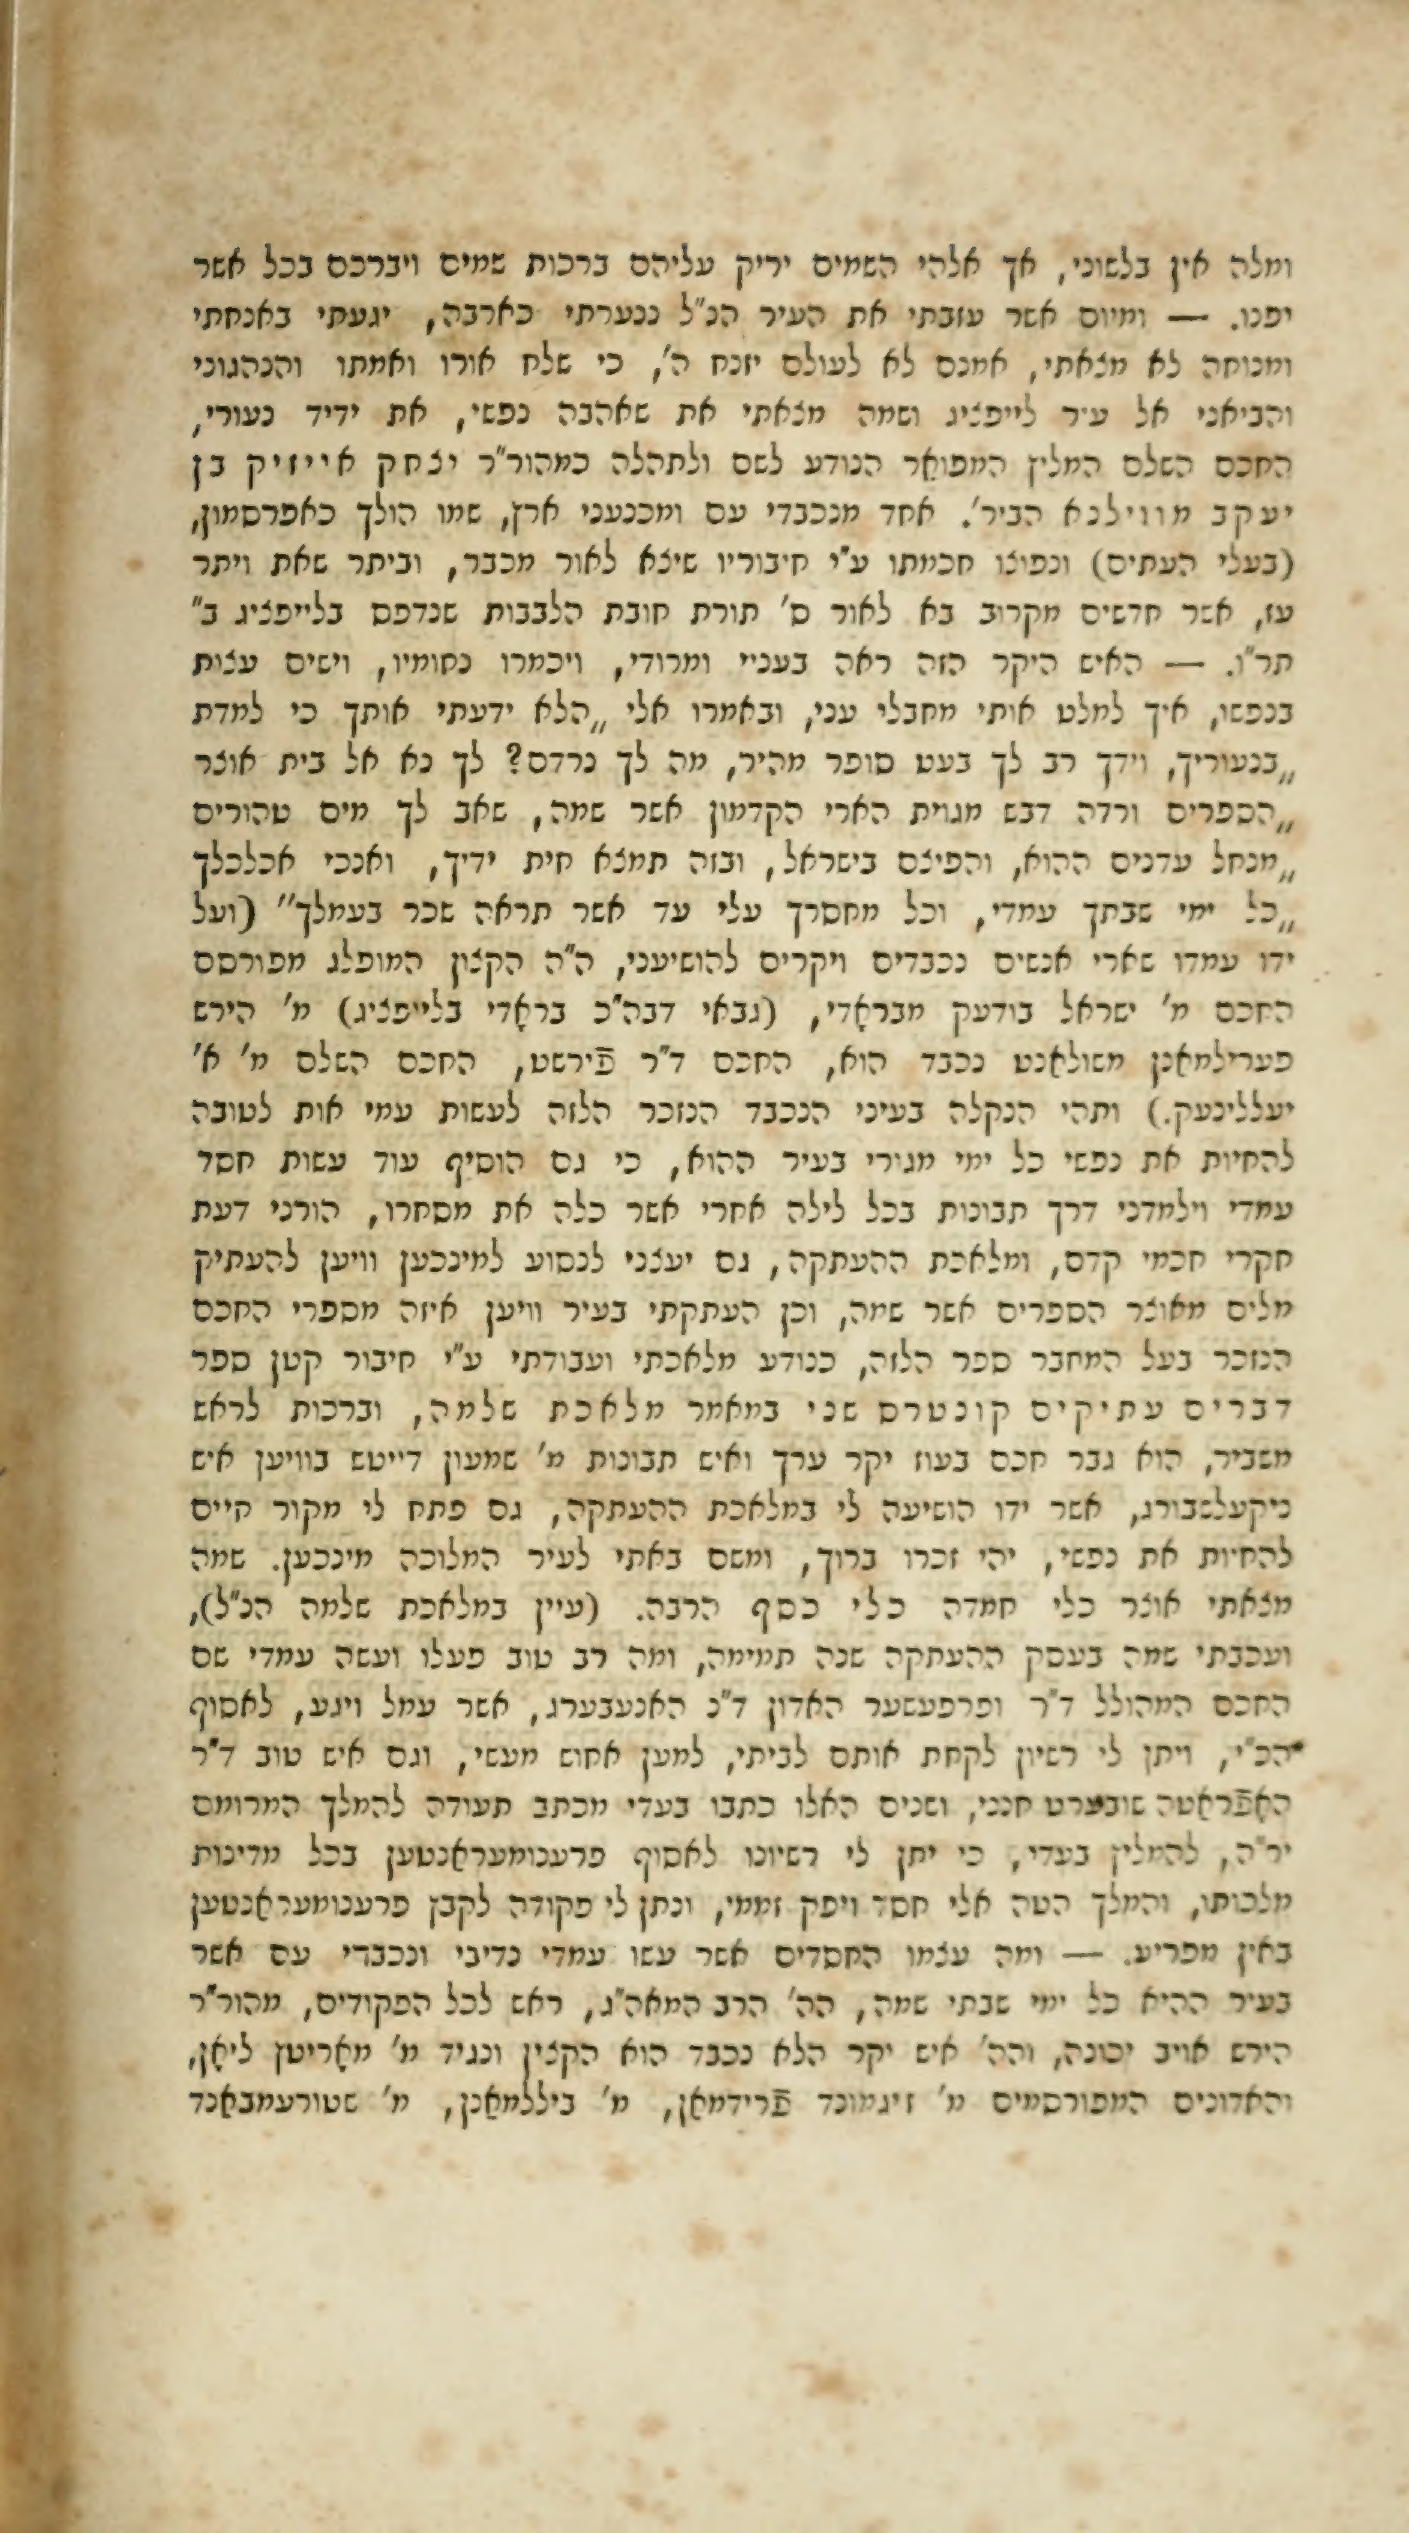 ומלה אין בלשוני, אך אלהי השמים יריק עליהם ברכות שמים ויברכם בכל אשר
יפנו. — ומיום אשר עזבתי את העיר הנ"ל ננערתי כארבה, יגעתי באנחתי
ומנוחה לא מצאתי, אמנם לא לעולם יזנח ה', כי שלח אורו ואמתו והנהגוני
והביאני אל עיר לייפציג ושמה מצאתי את שאהבה נפשי, את ידיד נעורי,
החכם השלם המליץ המפואר הנודע לשם ולתהלה כמהור"ר יצחק אייזיק בן
יעקב מווילנא הביר'. אחד מנכבדי עם ומכנעני ארץ, שמו הולך כאפרסמון,
(בעלי העתים) ונפוצו חכמתו ע"י חיבוריו שיצא לאור מכבר, וביתר שאת ויתר
עז, אשר חדשים מקרוב בא לאור ס' תורת חובת הלבבות שנדפס בלייפציג ב"
תר"ו. — האיש היקר הזה ראה בעניי ומרודי, ויכמרו נחומיו, וישים עצות
בנפשו, איך למלט אותי מחבלי עני, ובאמרו אלי „הלא ידעתי אותך כי למדת
„בנעוריך, וידך רב לך בעט סופר מהיר, מה לך נרדם? לך נא אל בית אוצר
„הספרים ורדה דבש מגוית הארי הקדמון אשר שמה, שאב לך מים טהורים
„מנחל עדנים ההוא, והפיצם בישראל, ובזה תמצא חית ידיך, ואנכי אכלכלך
„כל ימי שבתך עמדי, וכל מחסרך עלי עד אשר תראה שכר בעמלך" (ועל
ידו עמדו שארי אנשים נכבדים ויקרים להושיעני, ה"ה הקצין המופלג מפורסם
החכם מ' ישראל בודעק מבראָדי, (גבאי דבה"כ בראָדי בלייפציג) מ' הירש
פערילמאַנן משולאַנט נכבד הוא, החכם ד"ר פֿירשט, החכם השלם מ' א'
יעללינעק.) ותהי הנקלה בעיני הנכבד הנזכר הלזה לעשות עמי אות לטובה
להחיות את נפשי כל ימי מגורי בעיר ההוא, כי גם הוסיף עוד עשות חסד
עמדי וילמדני דרך תבונות בכל לילה אחרי אשר כלה את מסחרו, הורני דעת
חקרי חכמי קדם, ומלאכת ההעתקה, גם יעצני לנסוע למינכען וויען להעתיק
מלים מאוצר הספרים אשר שמה, וכן העתקתי בעיר וויען איזה מספרי החכם
הנזכר בעל המחבר ספר הלזה, כנודע מלאכתי ועבודתי ע"י חיבור קטן ספר
דברים עתיקים קונטרס שני במאמר מלאכת שלמה, וברכות לראש
משביר, הוא גבר חכם בעוז יקר ערך ואיש תבונות מ' שמעון דייטש בוויען איש
ניקעלשבורג, אשר ידו הושיעה לי במלאכת ההעתקה, גם פתח לי מקור חיים
להחיות את נפשי, יהי זכרו ברוך, ומשם באתי לעיר המלוכה מינכען. שמה
מצאתי אוצר כלי חמדה כלי כסף הרבה. (עיין במלאכת שלמה הנ"ל),
ועכבתי שמה בעסק ההעתקה שנה תמימה, ומה רב טוב פעלו ועשה עמדי שם
החכם המהולל ד"ר ופרפעשער האדון ד"נ האנעבערג, אשר עמל ויגע, לאסוף
הכ"י, ויתן לי רשיון לקחת אותם לביתי, למען אחוש מעשי, וגם איש טוב ד"ר
האָפֿראַטה שובערט חנני, ושנים האלו כתבו בעדי מכתב תעודה להמלך המרומם
יר"ה, להמליץ בעדי, כי יתן לי רשיונו לאסוף פרענומעראַנטען בכל מדינות
מלכותו, והמלך הטה אלי חסד ויפק זממי, ונתן לי פקודה לקבץ פרענומעראַנטען
באין מפריע. — ומה עצמו החסדים אשר עשו עמדי נדיבי ונכבדי עם אשר
בעיר ההיא כל ימי שבתי שמה, הה' הרב המאה"ג, ראש לכל הפקודים, מהור"ר
הירש אויב יכונה, והה' איש יקר הלא נכבד הוא הקצין ונגיד מ' מאָריטץ ליאָן,
והאדונים המפורסמים מ' זיגמונד פֿרידמאַן, מ' ביללמאַנן, מ' שטורעמבאַנד